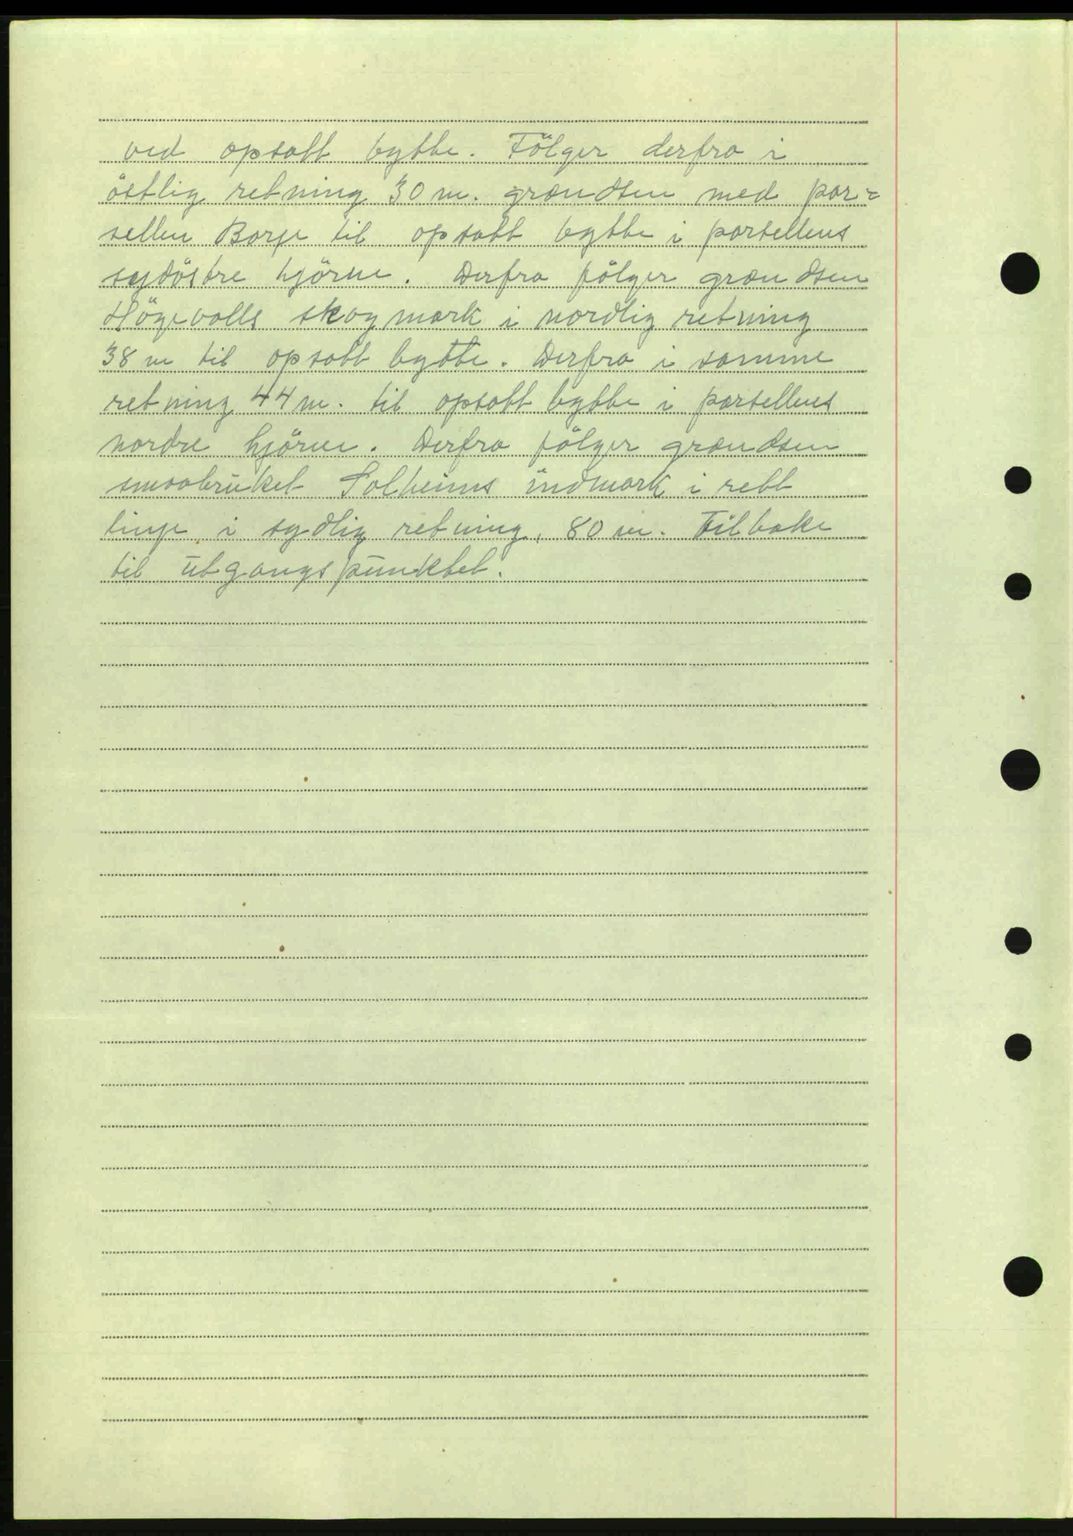 ved opsatt bytte. Fölger derfra i
östlig retning 30 m. grændsen med par=
sellen Borge til opsatt bytte i parsellens
sydöstre hjörne. Derfra fölger grændsen
Högevolls skogmark i nordlig retning
38 m til opsatt bytte. Derfra i samme
retning 44 m. til opsatt bytte i parsellens
nordre hjörne. Derfra fölger grændsen
smaabruket Solheims indmark i rett
linje i sydlig retning, 80 m. Tilbake
til utgangspunktet.